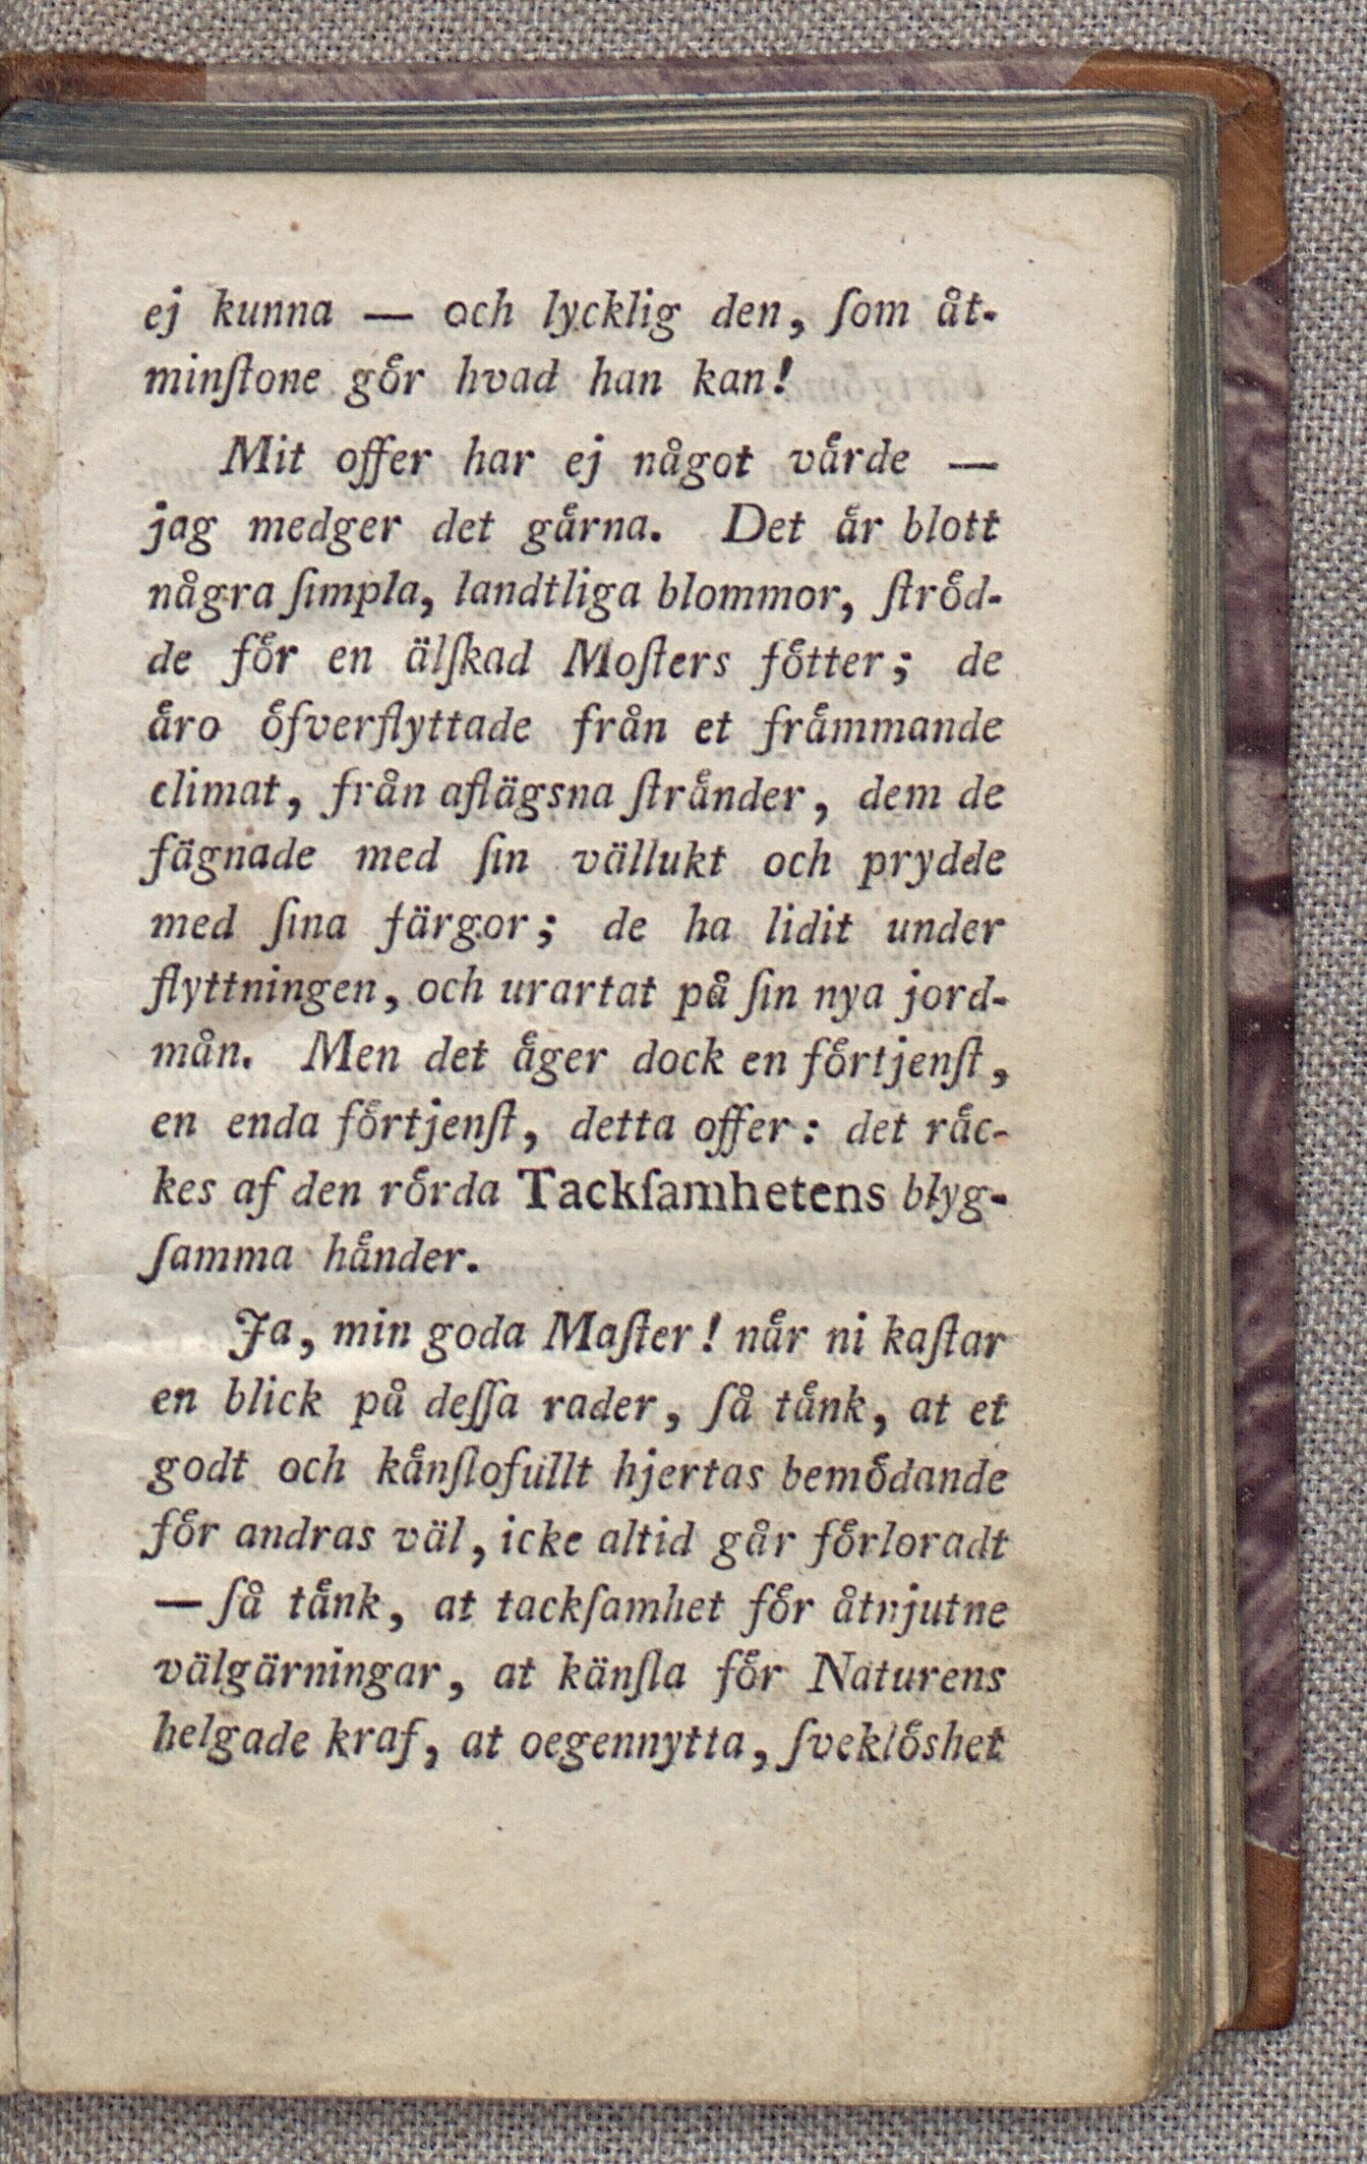 ej kunna — och lycklig den, ſom åt-
minſtone gör hvad han kan!
Mit offer har ej något värde —
jag medger det gärna. Det är blott
några ſimpla, landtliga blommor, ſtröd-
de för en älſkad Moſters fötter; de
äro öfverflyttade från et främmande
climat, från aflägsna ſtränder, dem de
fägnade med ſin vällukt och prydde
med ſina färgor; de ha lidit under
flyttningen, och urartat på ſin nya jord-
mån. Men det äger dock en förtjenſt,
en enda förtjenſt, detta offer: det räc-
kes af den rörda Tackſamhetens blyg-
ſamma händer.
Ja, min goda Maſter! när ni kaſtar
en blick på deſſa rader, ſå tänk, at et
godt och känſlofullt hjertas bemödande
för andras väl, icke altid går förloradt
— ſå tänk, at tackſamhet för åtnjutne
välgärningar, at känſla för Naturens
helgade kraf, at oegennytta, ſveklöshet